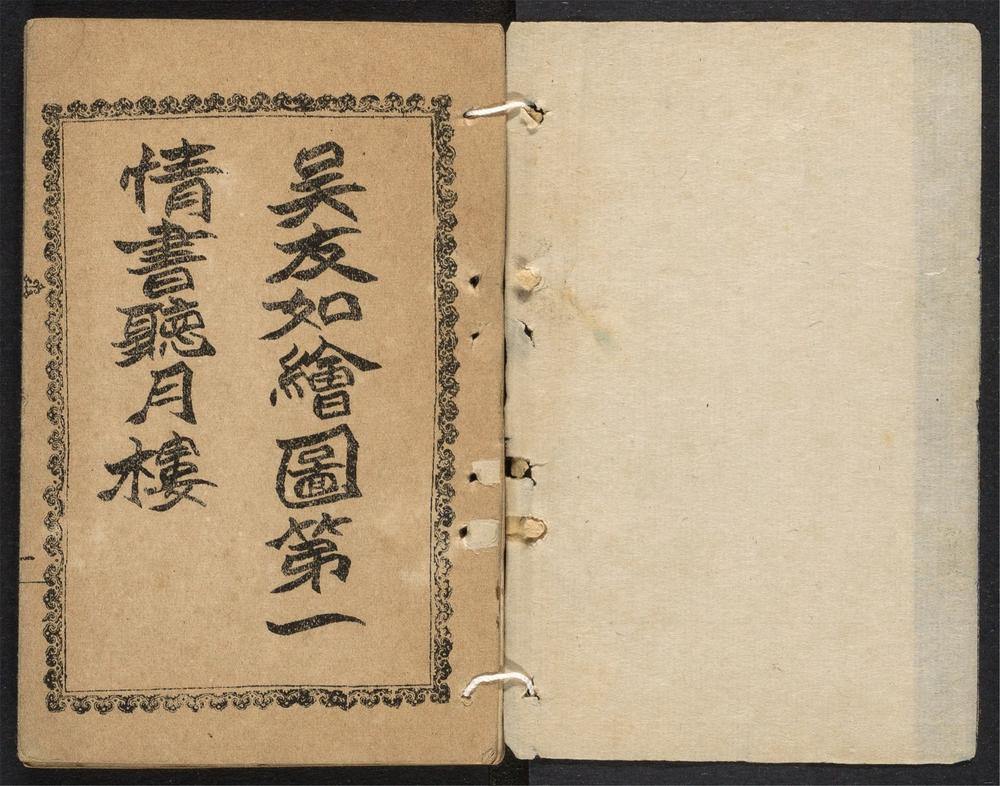 吴友如繪圖第一
情書聽月樓